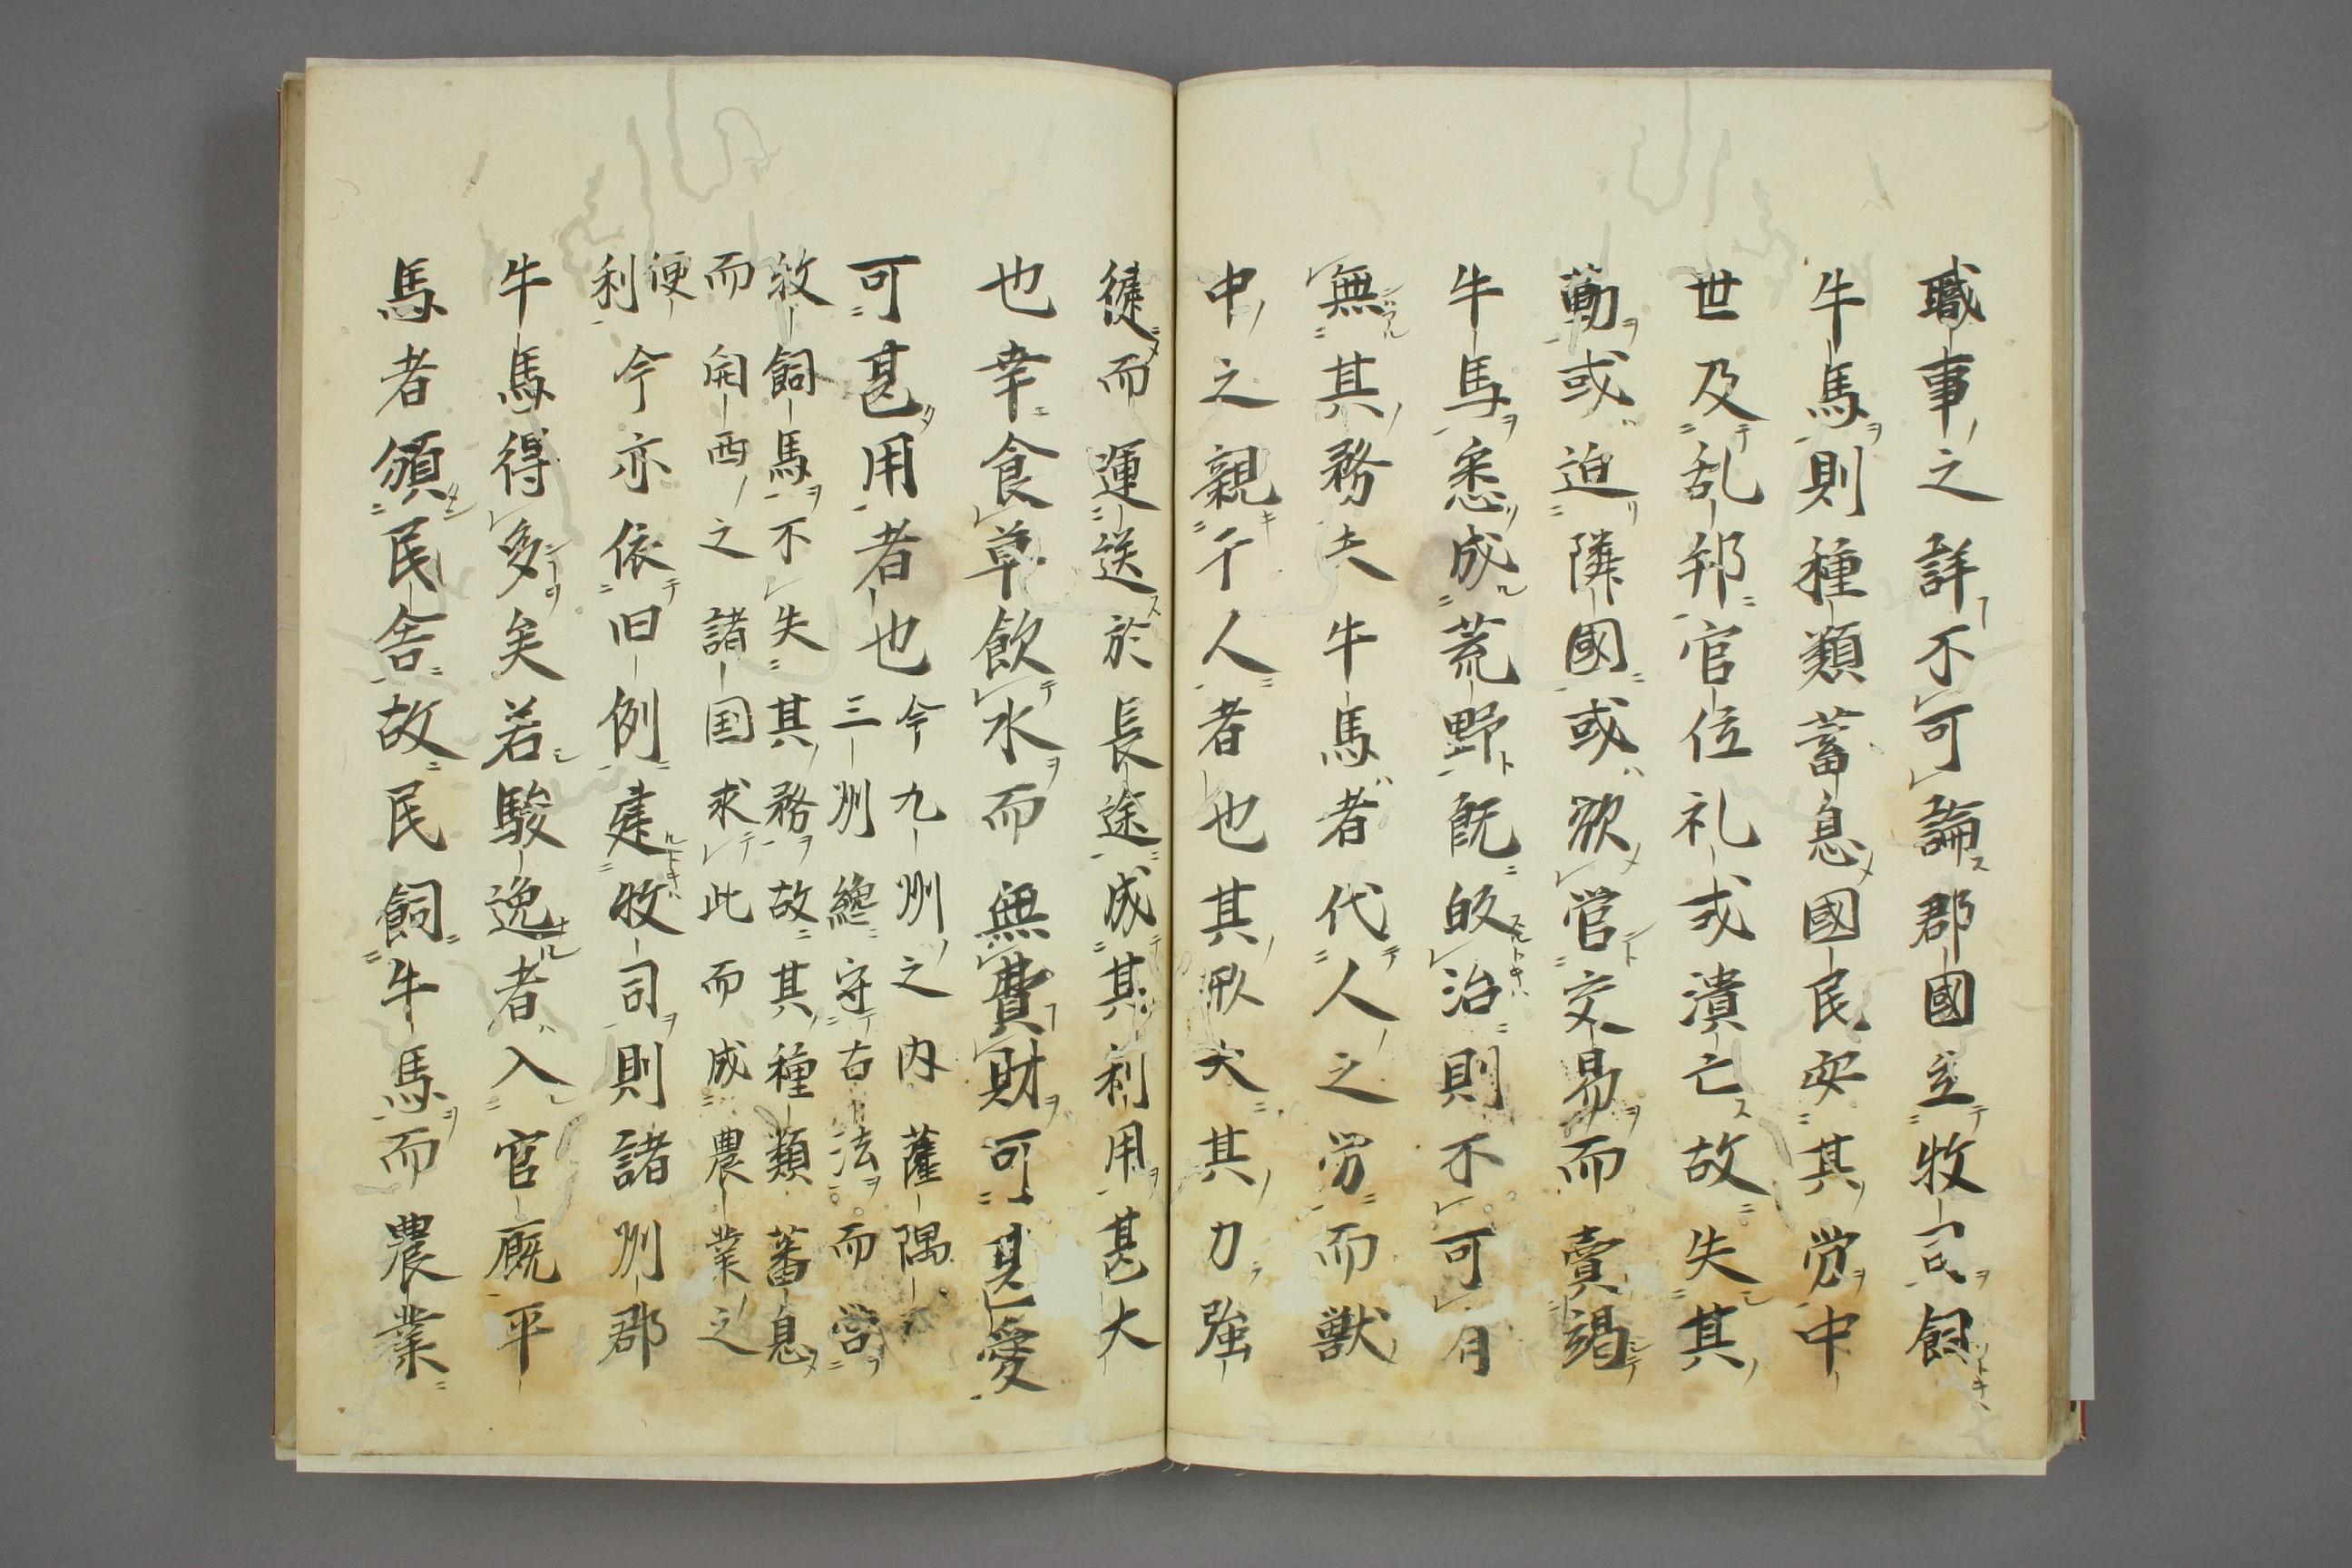 職事之詳不可論郡國立牧司飼
牛馬則種類蓄息國民安其労中
世及乱邦官位礼或潰亡故失其
勤或迫隣國或欲営交易而賣竭
牛馬悉成荒野既皈治則不可月
無其務夫牛馬者代人之労而獣
中之親于人者也其形大其力強
健而運送於長途成其利用甚大
也幸食草飲水而無費財可甚愛
可甚用者也
今九州之内薩隅
三州纔守古法而営
牧飼馬不失其務故其種類蕃息
而関西之諸国求此而成農業之
便
利今亦依旧例建牧司則諸州郡
牛馬得多矣若駿逸者入官厩平
馬者頒民舎故民飼牛馬而農業